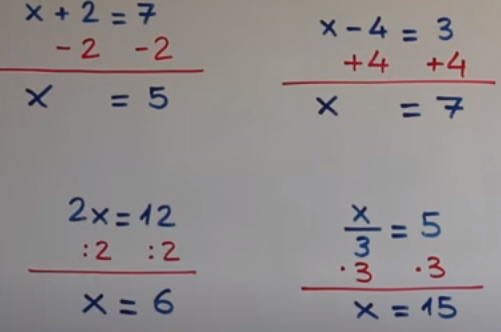 x + 2 = 7
- 2 - 2
x = 5
x - 4 = 3
+4 +4
x = 7
2x = 12
:2 :2
x = 6
x/3 = 5
·3 ·3
x = 15